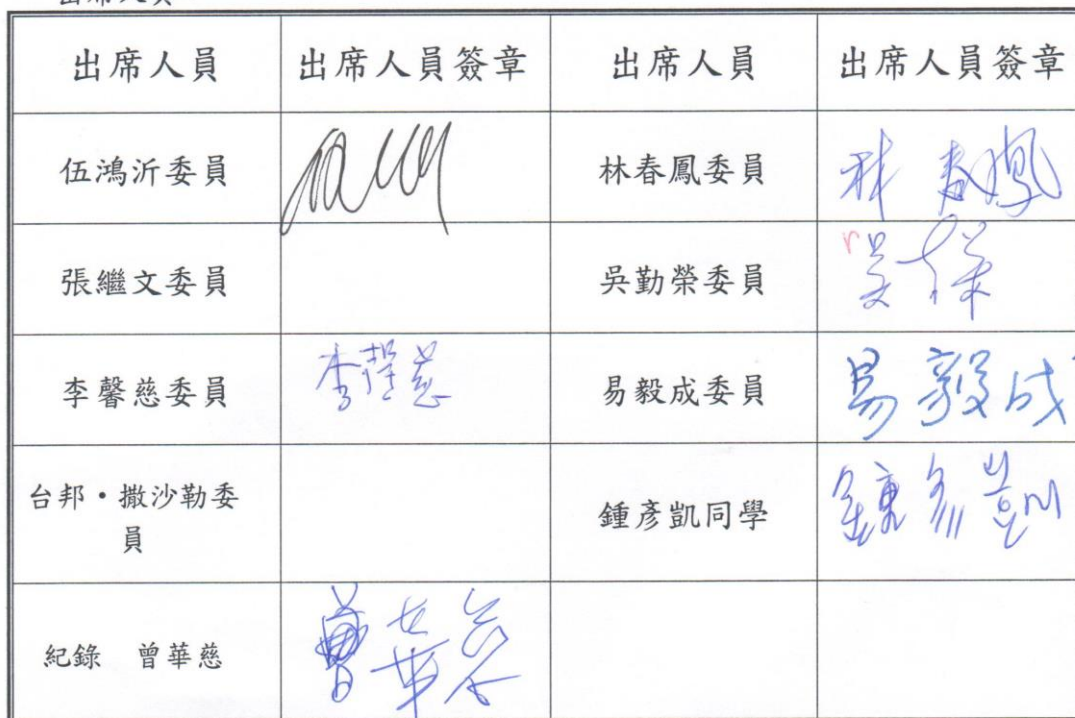 出席人員
出席人員 出席人員簽章 出席人員 出席人員簽章
伍鴻沂委員 林春鳳委員 林春鳳
張繼文委員 吳勤榮委員
李馨慈委員 李馨慈 易毅成委員 易毅成
台邦・撒沙勒委
員 鍾彥凱同學 鍾彥凱
紀錄 曾華慈 曾華慈